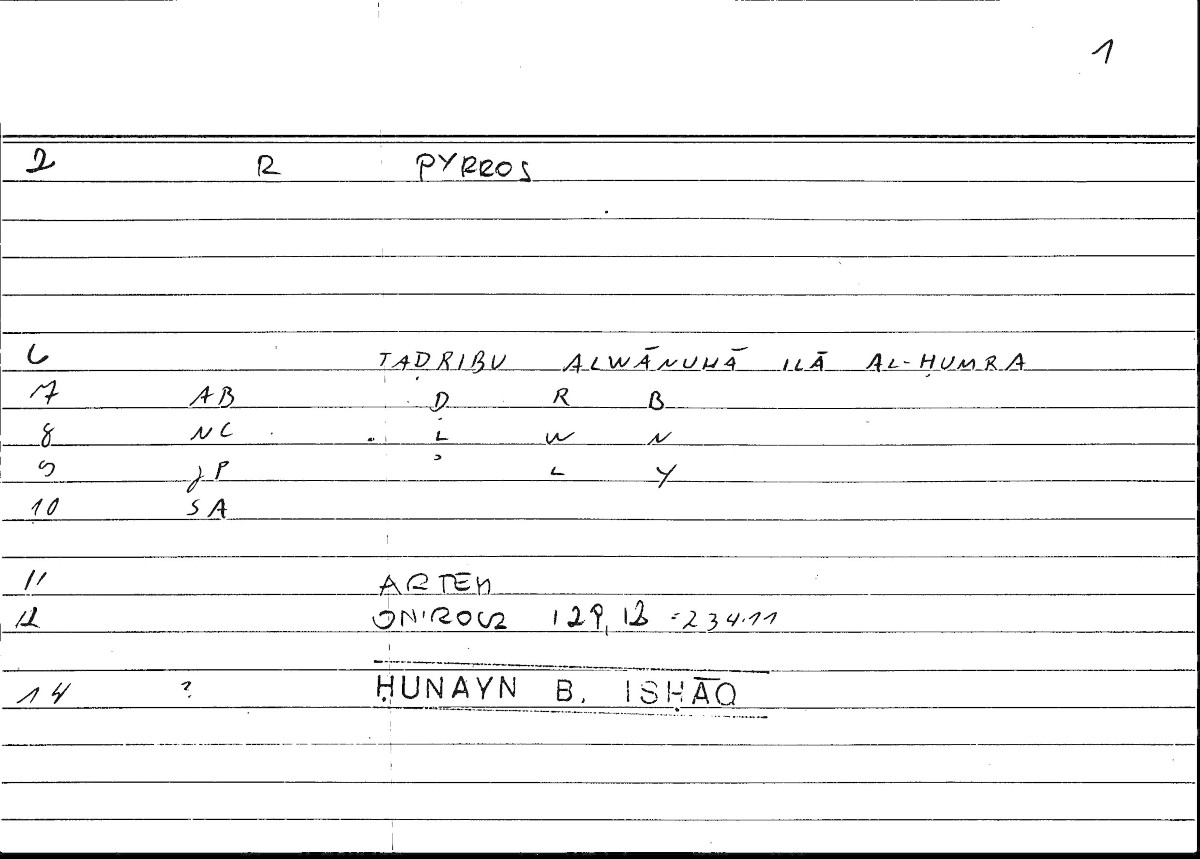 1
2 R PYRROS
6 TAḌRIBU ALWĀNUHĀ ILĀ AL-ḤUMRA
7 AB Ḍ R B
8 NC L W N
9 JP ʾ L Y
10 SA
11 ARTEM
12 ONIROCR 129,12 =234.11
14 ? ḤUNAYN B. ISḤĀQ